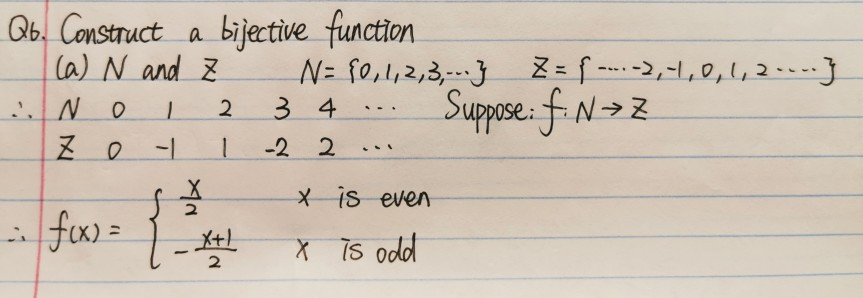 Q6. Construct a bijective function
(a) N and Z N = {0,1,2,3,...} Z = {.....-2,-1,0,1,2.....}
∴ N 0 1 2 3 4 ... Suppose: f: N → Z
Z 0 -1 1 -2 2 ...
∴ f(x) = { x/2 x is even
-(x+1)/2 x is odd